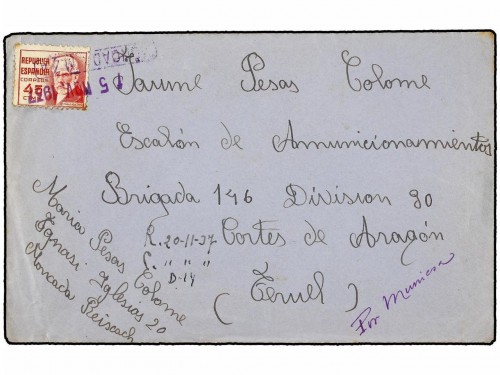 REPUBLICA
ESPAÑOLA
CORREOS
45
CTS
15 NOV. 1937
Jaume Pesas Colome
Escalón de Amunicionamientos
Brigada 146 Division 30
Cortes de Aragón
(Teruel)
R. 20-11-37
C. " " "
D-14
Por Muniesa
Maria Pesas Colome
Ignasi Yglesias 20
Moncada Reixach